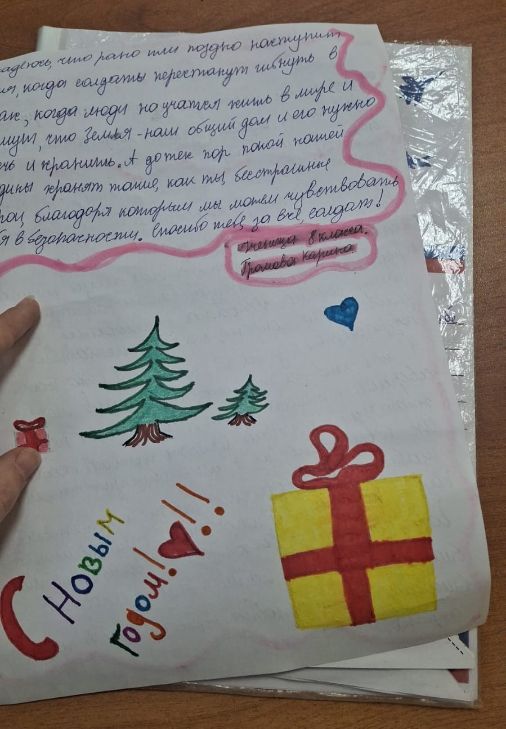 адеюсь, что рано или поздно наступит
когда солдаты перестанут гибнуть в
ах, когда люди научатся жить в мире и
мут, что Земля - нам общий дом и его нужно
чь и хранить. А до тех пор покой нашей
дины хранят такие, как ты, бесстрашные
рои, благодаря которым мы можем чувствовать
я в безопасности. Спасибо тебе за всё, солдат!
ученица 8 класса.
Громова Карина
С Новым
годом!!!